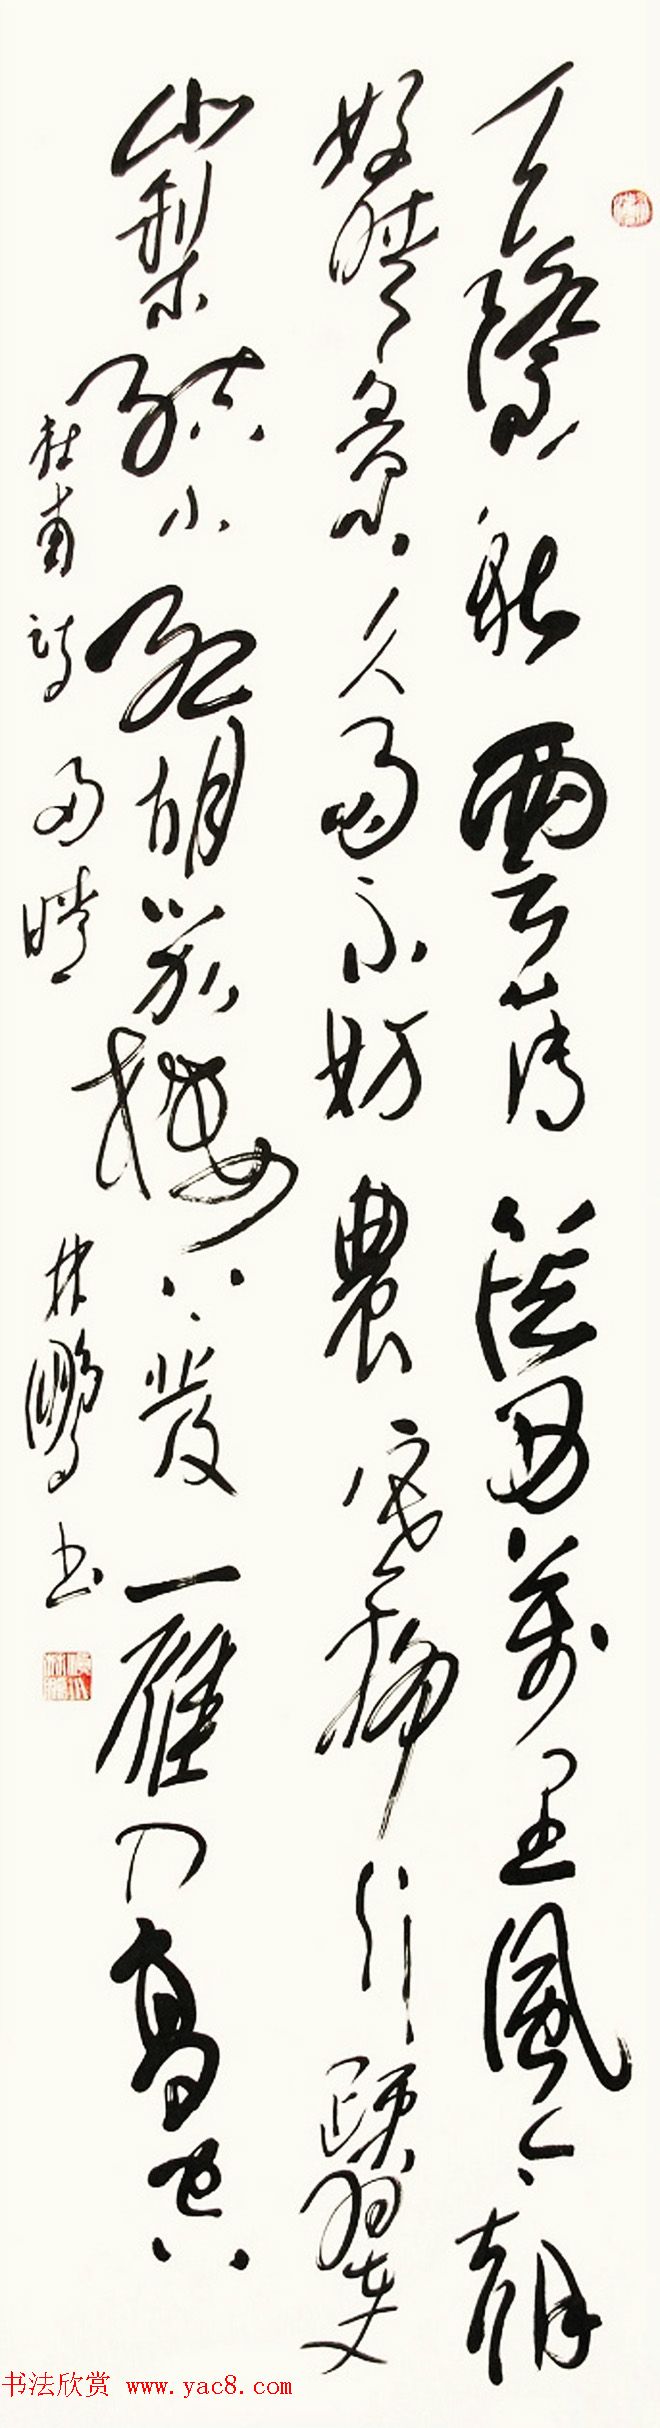 天際秋雲薄從西萬里風今朝
好晴景久雨不妨農塞柳行疎翠
山梨結小紅胡笳樓上發一雁入高空
杜甫詩 雨晴 林鵬书
书法欣赏 www.yac8.com